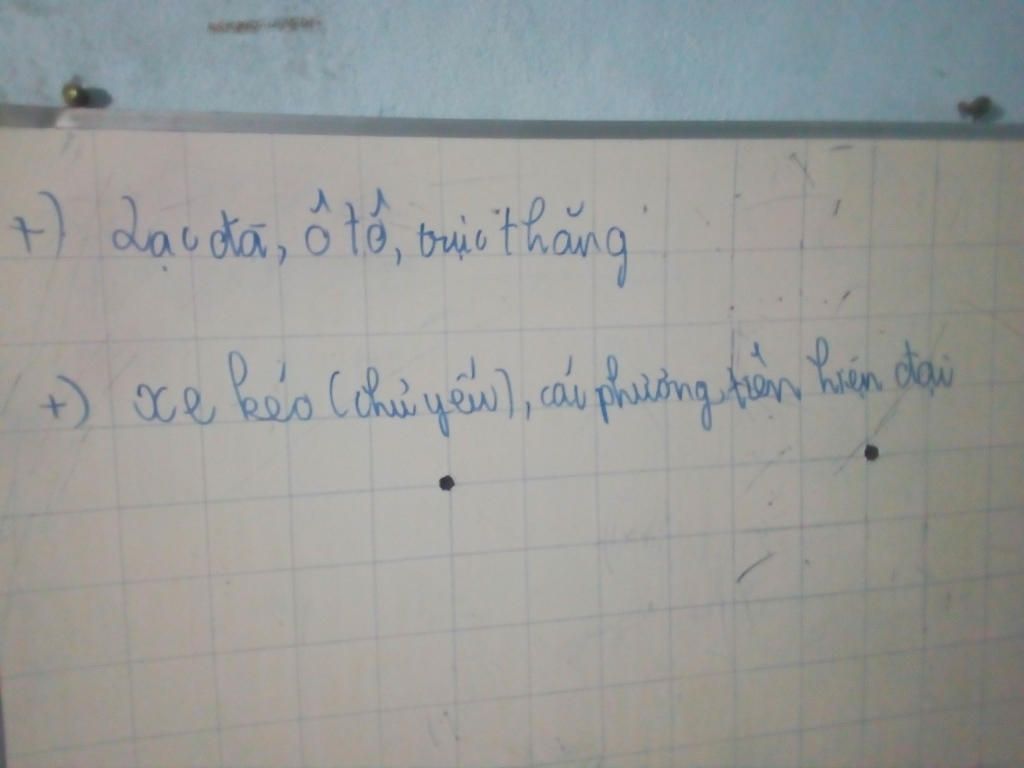 +) Lạc đà, Ô tô, trực thăng
+) xe kéo (chủ yếu), các phương tiện hiện đại